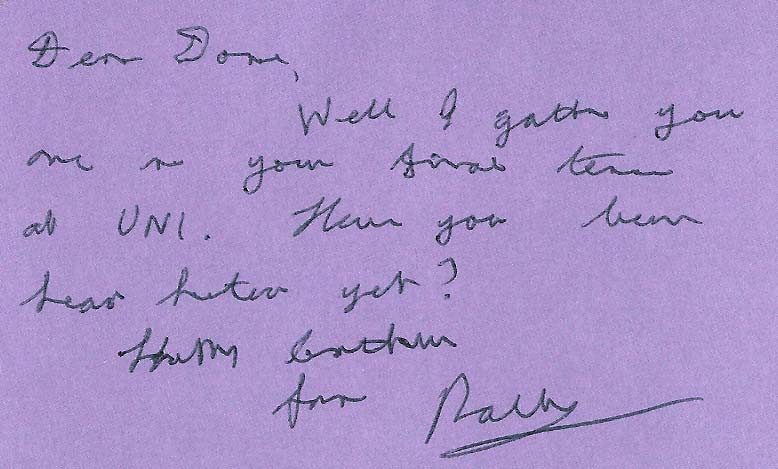 Dear Dom,
Well I gather you
are in your final term
at UNI. Have you been
head hunted yet?
Happy Birthday
from Ralby